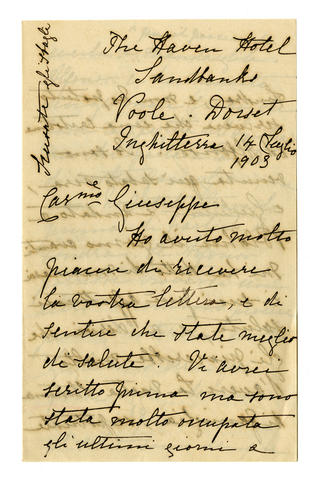 Scusate gli sbagli
The Haven Hotel
Sandbanks
Poole. Dorset
Inghilterra 14 Luglio
1903
Carmo Giuseppe
Ho avuto molto
piacere di ricevere
la vostra lettera, e di
sentire che state meglio
di salute. Vi avrei
scritto prima ma sono
stata molto occupata
gli ultimi giorni a